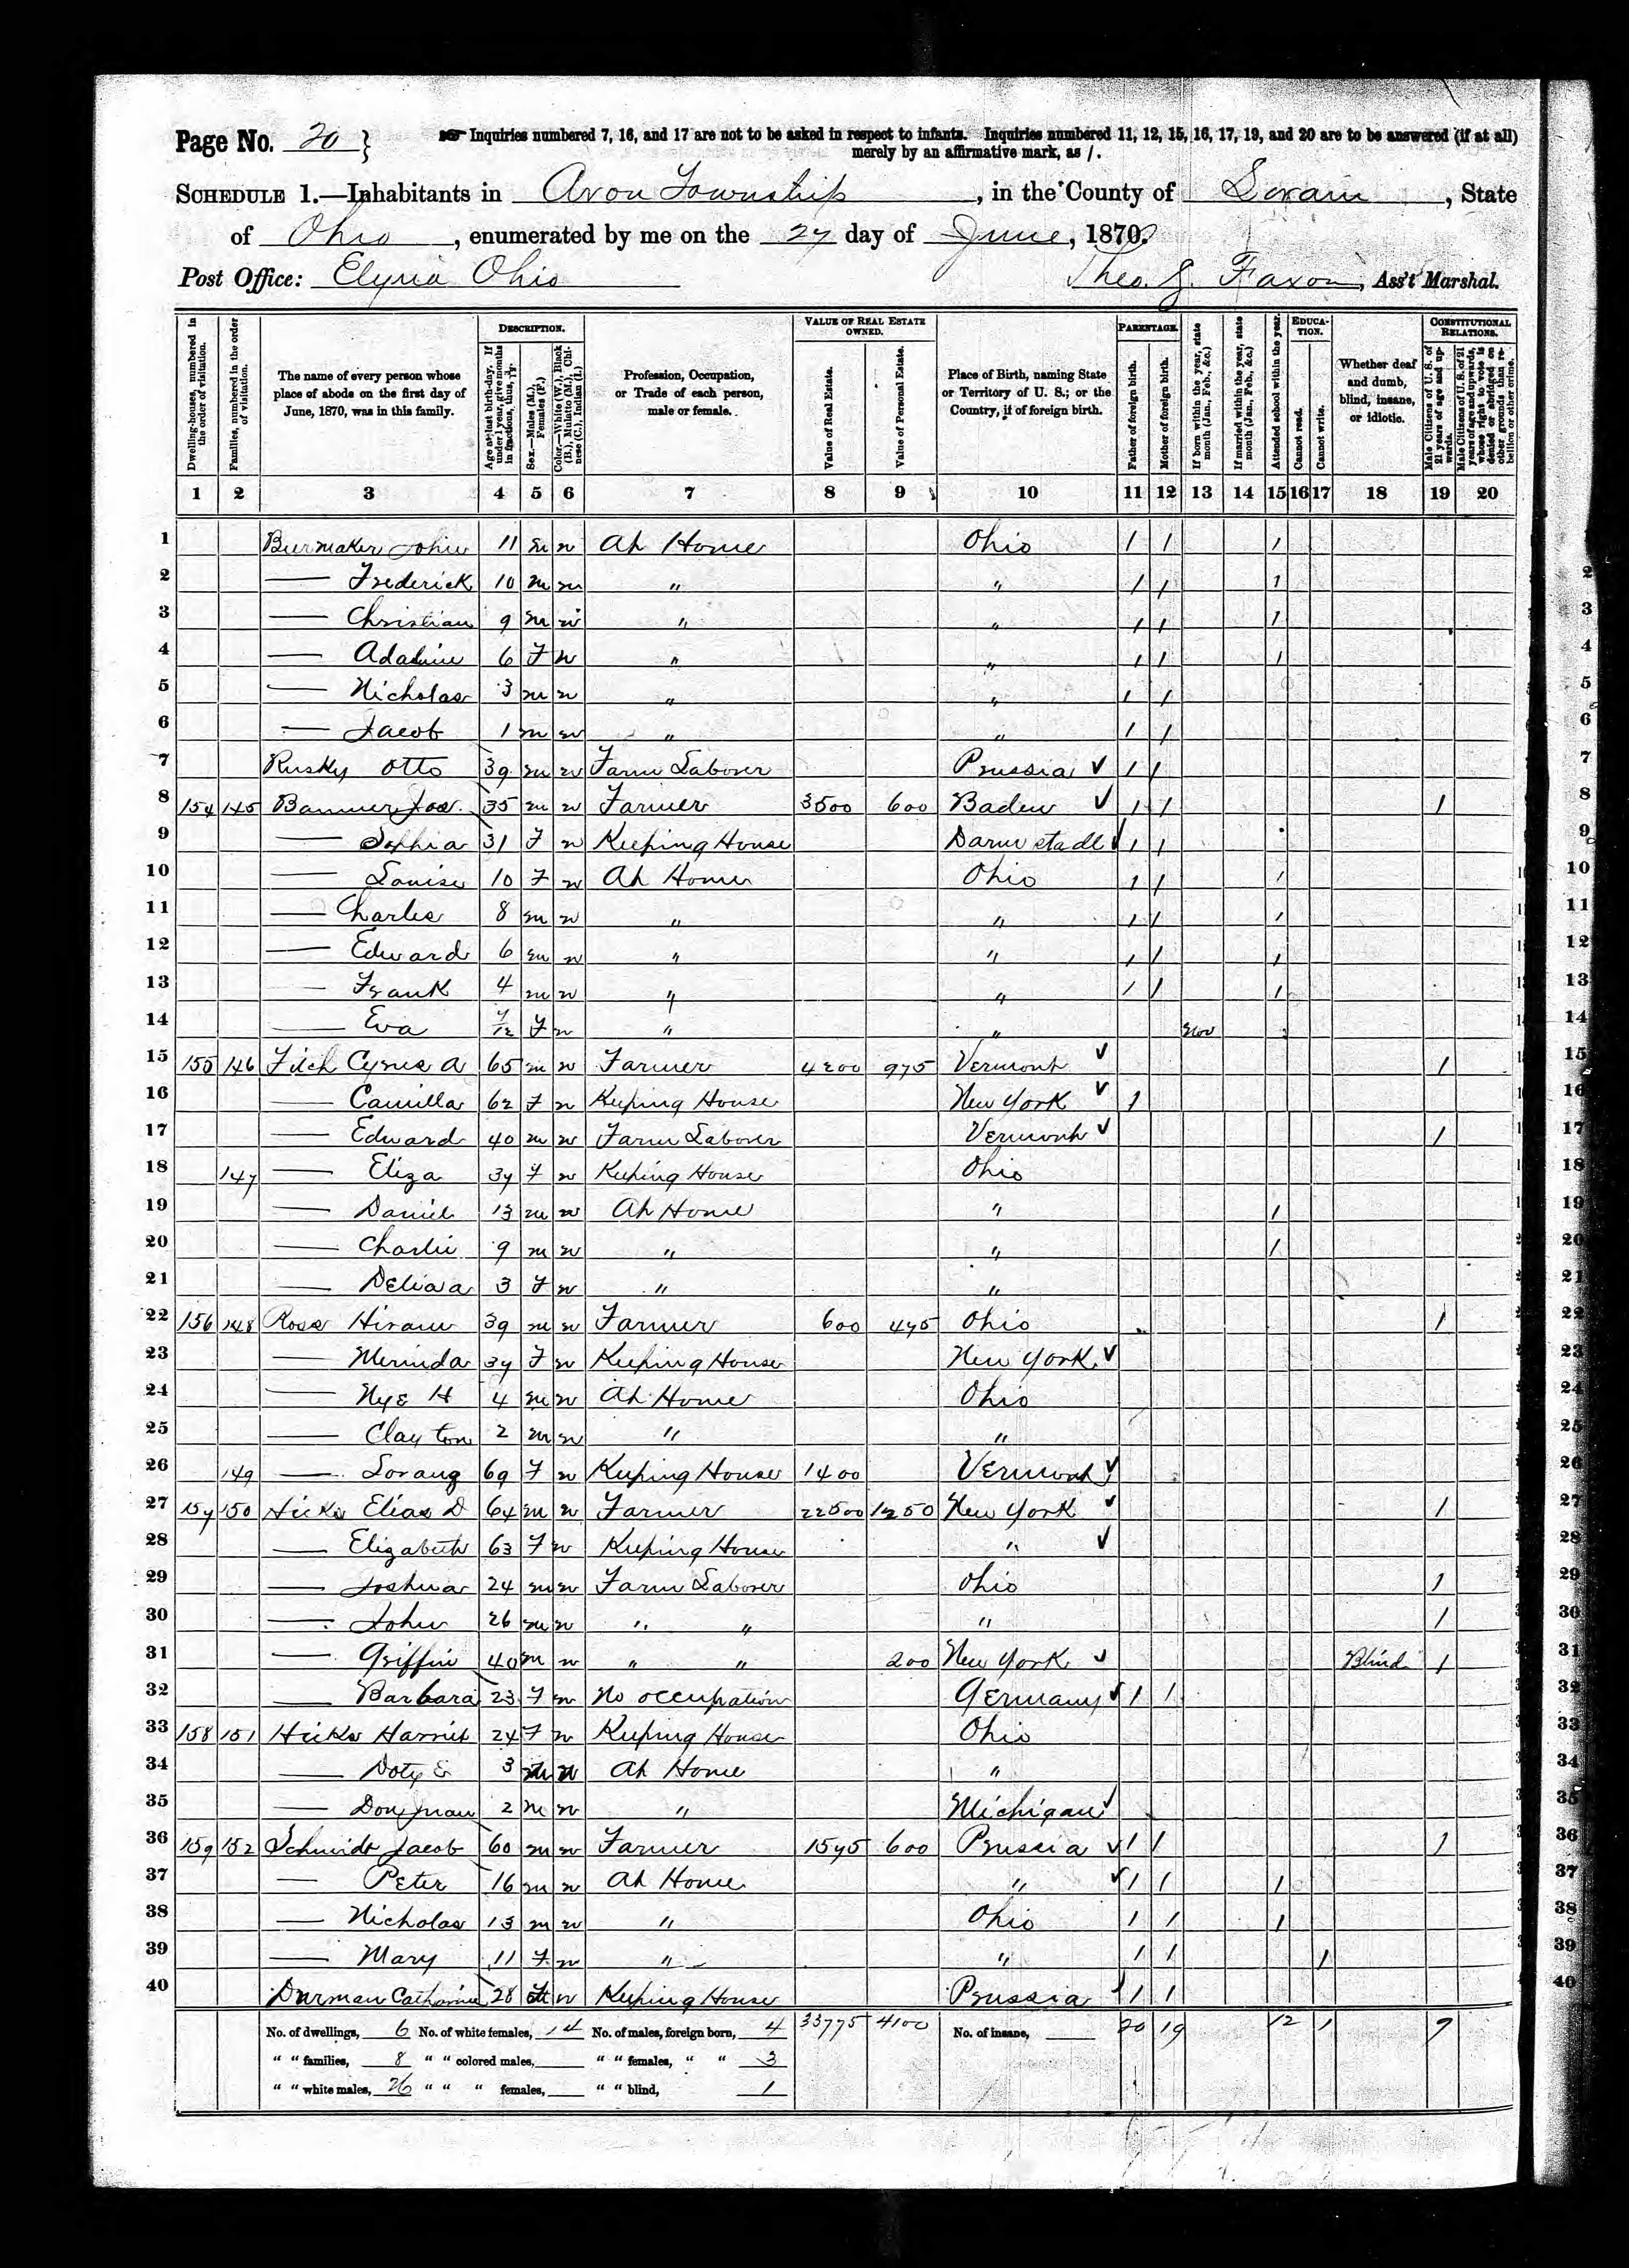 Page No. 20 }
Inquiries numbered 7, 16, and 17 are not to be asked in respect to infants. Inquiries numbered 11, 12, 15, 16, 17, 19, and 20 are to be answered (if at all)
merely by an affirmative mark, as /.
SCHEDULE 1.—Inhabitants in Avon Township, in the County of Lorain, State
of Ohio, enumerated by me on the 27 day of June, 1870.
Post Office: Elyria Ohio Theo. Faxon, Ass't Marshal.
Dwelling-houses, numbered in the order of visitation.
Families, numbered in the order of visitation.
The name of every person whose place of abode on the first day of June, 1870, was in this family.
DESCRIPTION.
Age at last birth-day. If under 1 year, give months in fractions, thus, 3/12.
Sex.—Males (M.), Females (F.)
Color.—White (W.), Black (B.), Mulatto (M.), Chinese (C.), Indian (I.)
Profession, Occupation, or Trade of each person, male or female.
VALUE OF REAL ESTATE OWNED.
Value of Real Estate.
Value of Personal Estate.
Place of Birth, naming State or Territory of U. S.; or the Country, if of foreign birth.
PARENTAGE.
Father of foreign birth.
Mother of foreign birth.
If born within the year, state month (Jan., Feb., &c.)
If married within the year, state month (Jan., Feb., &c.)
Attended school within the year.
EDUCATION.
Cannot read.
Cannot write.
Whether deaf and dumb, blind, insane, or idiotic.
CONSTITUTIONAL RELATIONS.
Male Citizens of U. S. of 21 years of age and upwards.
Male Citizens of U. S. of 21 years of age and upwards, whose right to vote is denied or abridged on other grounds than rebellion or other crime.
1 2 3 4 5 6 7 8 9 10 11 12 13 14 15 16 17 18 19 20
1 Burmaker John 11 m w At Home Ohio / / /
2 — Frederick 10 m w " " / / /
3 — Christian 9 m w " " / / /
4 — Adaline 6 F w " " / / /
5 — Nicholas 3 m w " " / /
6 — Jacob 1 m w " " / /
7 Rusky Otto 39 m w Farm Laborer Prussia ✓ / /
8 154 145 Bammer Jos. 35 m w Farmer 3500 600 Baden ✓ / / /
9 — Sophia 31 F w Keeping House Darmstadt ✓ / /
10 — Louise 10 F w At Home Ohio / / /
11 — Charles 8 m w " " / / /
12 — Edward 6 m w " " / / /
13 — Frank 4 m w " " / / /
14 — Eva 7/12 F w " " Nov
15 155 146 Fitch Cyrus A 65 m w Farmer 4200 975 Vermont ✓ /
16 — Camilla 62 F w Keeping House New York ✓ /
17 — Edward 40 m w Farm Laborer Vermont ✓ /
18 147 — Eliza 37 F w Keeping House Ohio
19 — Daniel 13 m w At Home " /
20 — Charlie 9 m w " " /
21 — 3 F w " "
22 156 148 Ross Hiram 39 m w Farmer 600 475 Ohio /
23 — Merinda 37 F w Keeping House New York ✓
24 — Nye H 4 m w At Home Ohio
25 — Clayton 2 m w " "
26 149 — Lorany 69 F w Keeping House 1400 Vermont ✓
27 157 150 Hicks Elias D 64 m w Farmer 22500 1250 New York ✓ /
28 — Elizabeth 63 F w Keeping House " ✓
29 — Joshua 24 m w Farm Laborer Ohio /
30 — John 26 m w " " " /
31 — Griffin 40 m w " " 200 New York ✓ Blind /
32 — Barbara 23 F w No occupation Germany ✓ / /
33 158 151 Hicks Harriet 24 F w Keeping House Ohio
34 — Doty E 3 m w At Home "
35 — Don Juan 2 m w " Michigan ✓
36 159 152 Schmidt Jacob 60 m w Farmer 1575 600 Prussia ✓ / / /
37 — Peter 16 m w At Home " ✓ / / /
38 — Nicholas 13 m w " Ohio / / /
39 — Mary 11 F w " " / / /
40 Durman Catharine 28 F w Keeping House Prussia / /
No. of dwellings, 6 No. of white females, 14 No. of males, foreign born, 4 33775 4100 No. of insane, 20 19 12 1 9
" " families, 8 " " colored males, " " females, " " 3
" " white males, 26 " " " females, " " blind, 1